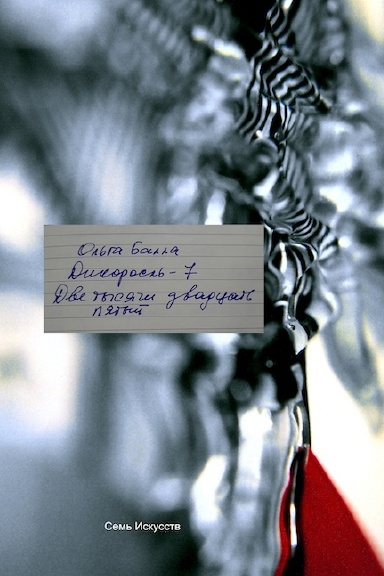 Ольга Балла
Дикоросль-7
Две тысячи двадцать
пятый
Семь Искусств